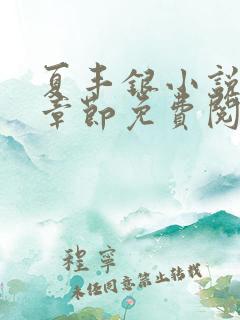 夏丰银小说
章节免费阅
程宁
未经同意禁止转载